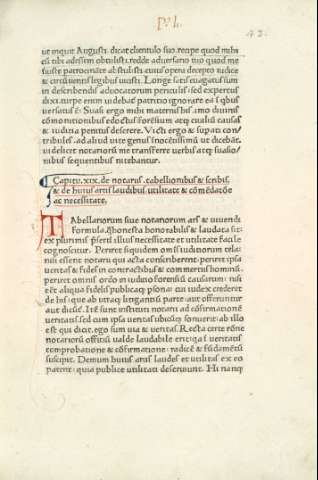 42.
ut inquit Augusti. dicat clientulo suo. recipe quod mihi
cū tibi adessem obtulisti. redde aduersario tuo quod me
fuisse patrocināte abstulisti. cuius opera decepto iudice
& circūuentis legibus uicisti. Longe satis euagatus sum
in describendis aduocatorum periculis: sed expertus
dixi. turpe enim uidebat patritio ignorare ea ī qbus
uersatus ē. Suasi ergo mihi maternis his. imo diuinis
cōmonitionibus edoctus foresium atq; ciuiliū causas
& iuditia penitus deserere. Victi ergo & stupati con/
tribules. ad aliud uite genus īnocētissimū ut dicebāt.
uidelicet notarioiū me transferre uerbis atq; suasio/
nibus sequentibus nitebantur.
Capitu. xix. de notariis. tabellionibus & scribis
& de huius artis laudibus. utilitate & cōmēdatōe
ac necessitate.
TAbellariorum siue notariorum ars & uiuendi
Formula. q̄ honesta honorabilis & laudata sit:
ex plurimis p̄sertī illius necessitate et utilitate facile
cognoscitur. Periret siquidem omīs iuditiorum tela:
nisi essent notarii qui acta conscriberent. periret ipsa
ueritas & fides in contractibus & commertiis hominū.
periret omnis ordo in iuditio forensiū causarum: nisi
eēt aliqua fidelis publicaq; psona: cui iudex crederet
de his: que ab utraq; litigantiū parte aut offeruntur
aut dicūt. Itē sunt instituti notarii ad cōfirmationē
ueritatis. sed cum ipsa ueritas ubicūq; fouerit: ab illo
est qui dicit. ego sum uia & ueritas. Recta certe rōne
notarioiū offitiū ualde laudabile erit: ga ī ueritatis
comprobatione & cōfirmatione: radicē & fūdamētū
suscipit. Demum huius artis laudes et utilitas ex eo
patent: quia publice utilitati deseruiunt. Hi nanq;